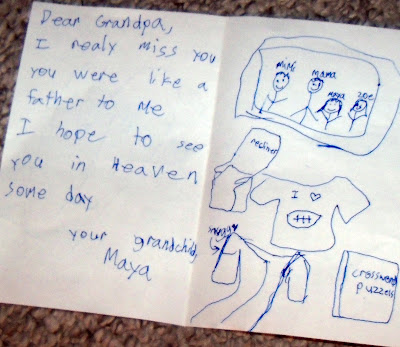 Dear Grandpa,
I realy miss you
you were like a
father to me
I hope to see
you in Heaven
some day
your grandchild,
Maya
MiMi
MAMA
MAYA
zoe
recliner
I
crossword
puzzels